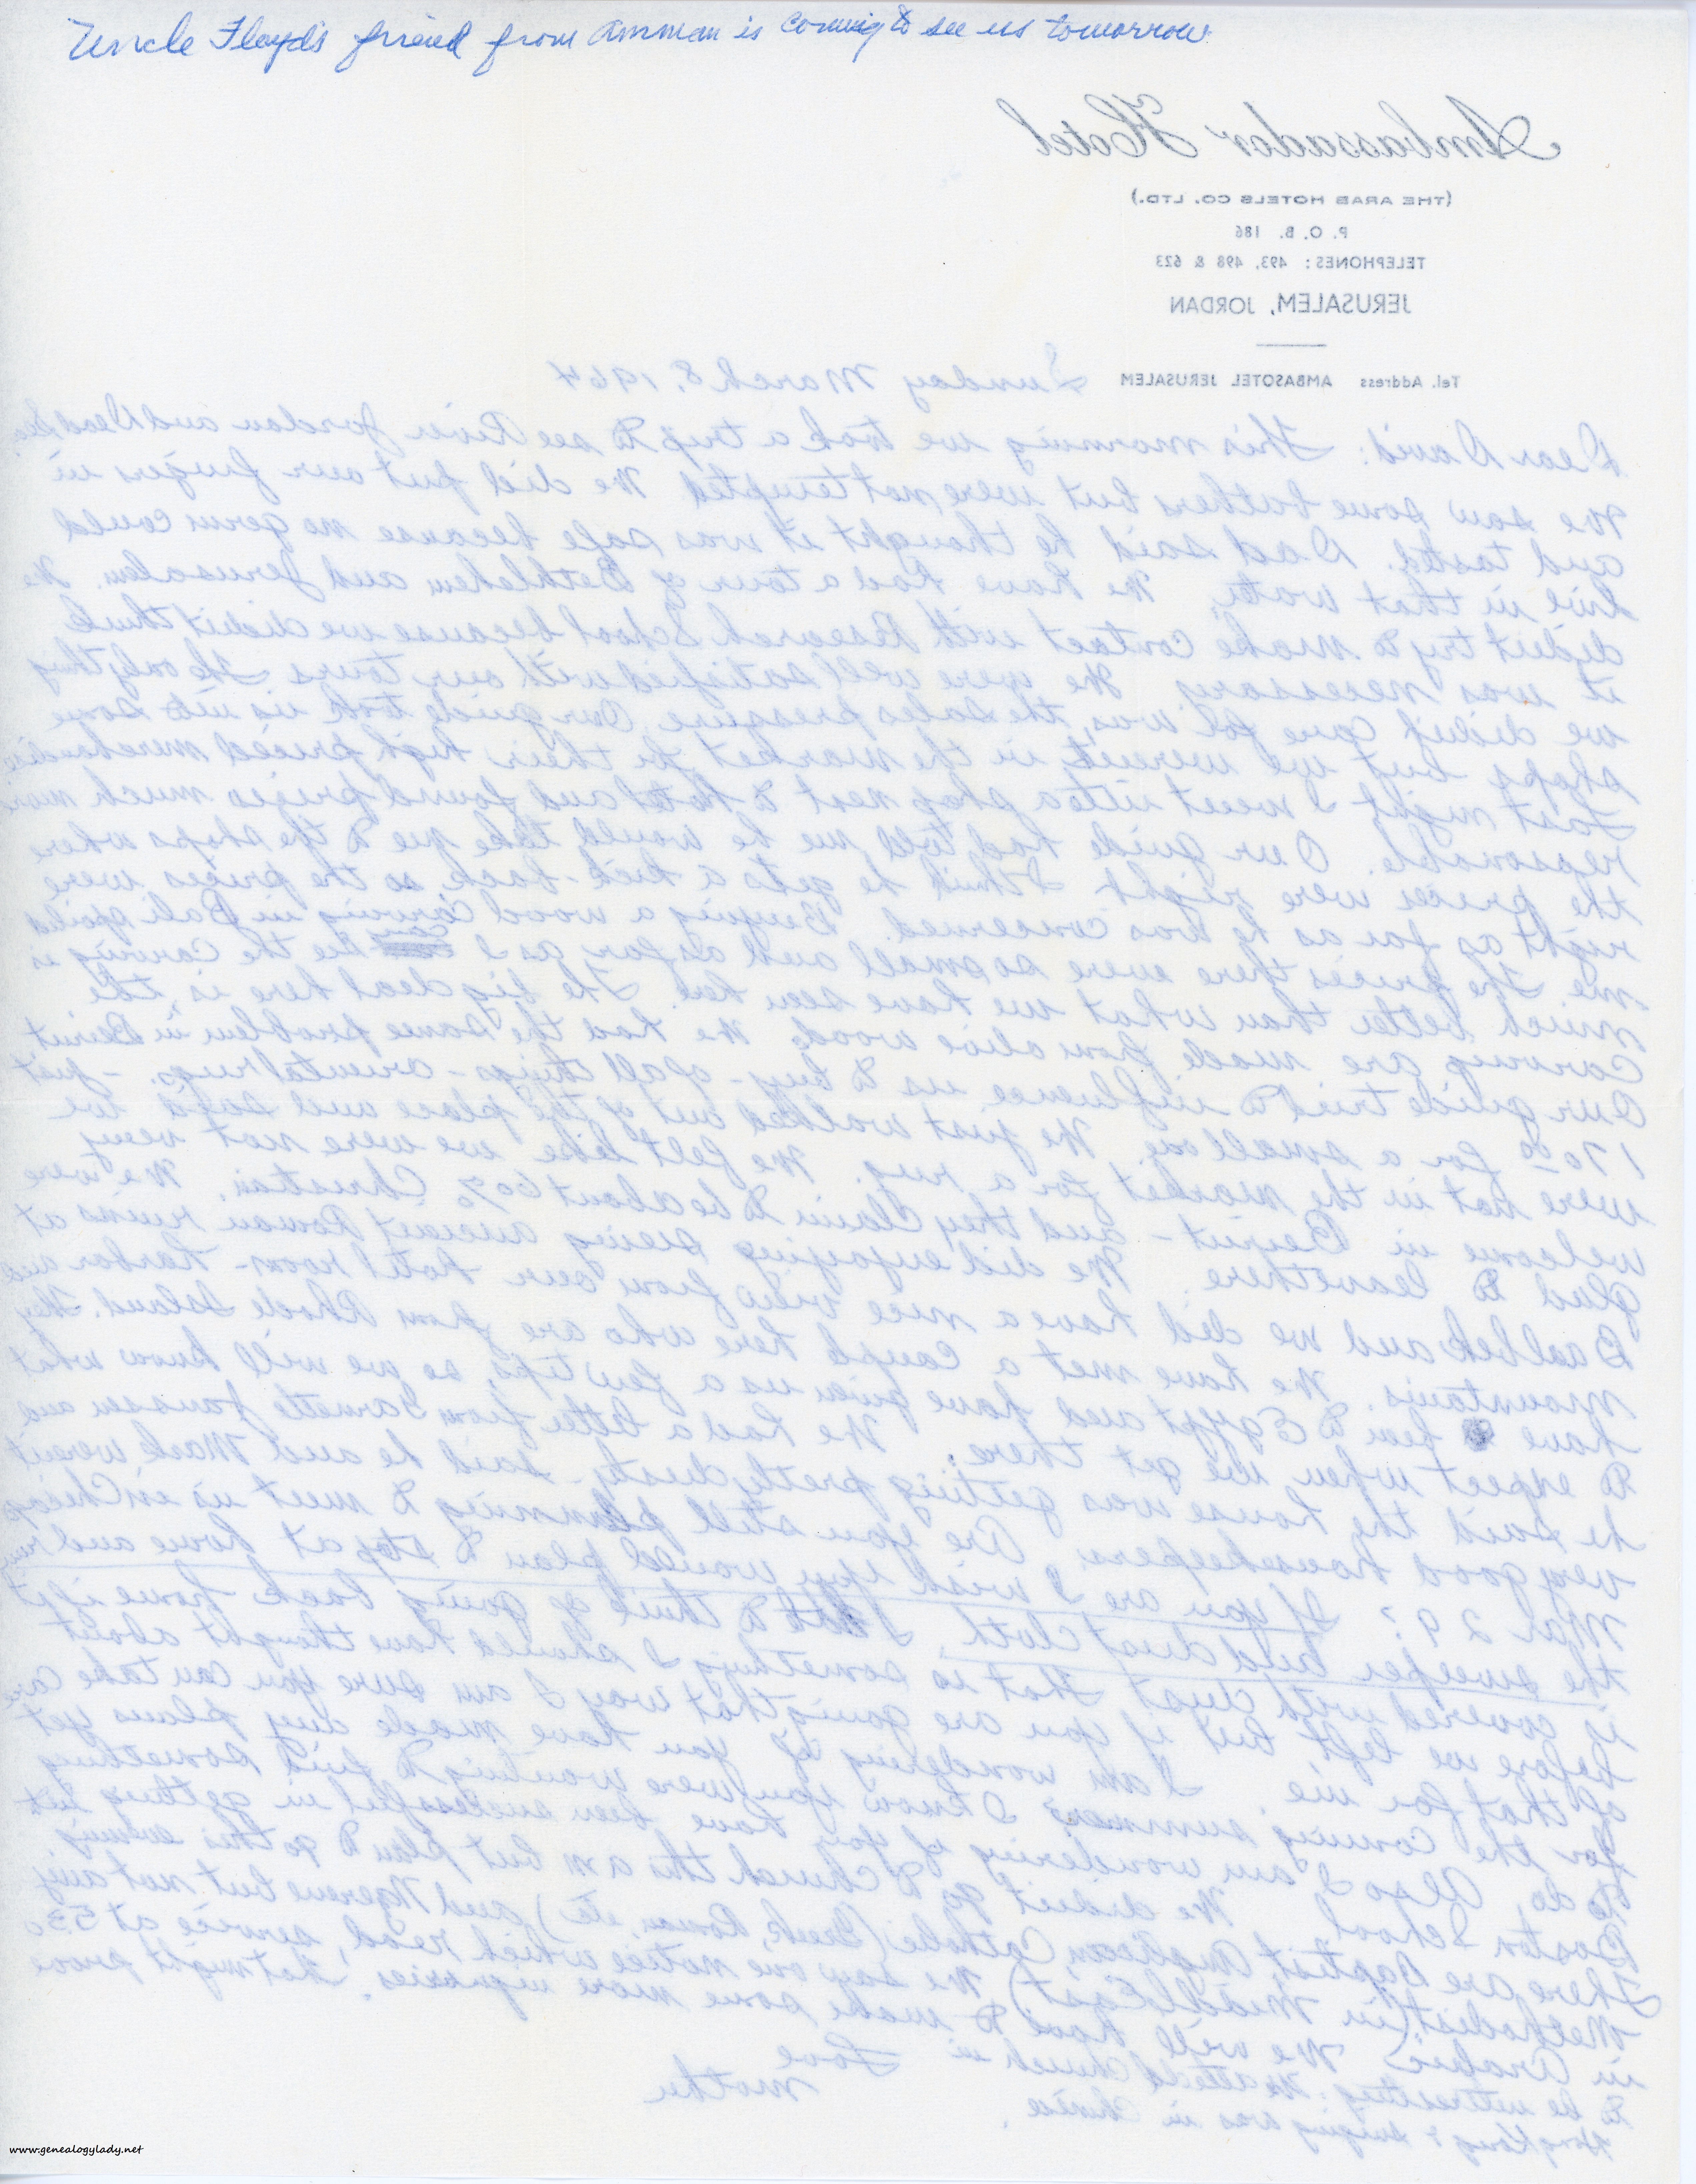 Uncle Floyd's friend from Amman is coming to see us tomorrow.
Ambassador Hotel
(THE ARAB HOTELS CO. LTD.)
P. O. B. 186
TELEPHONES: 493, 498 & 623
JERUSALEM, JORDAN
Tel. Address AMBASOTEL JERUSALEM
Sunday March 8, 1964
Dear David: This morning we took a trip to see River Jordan and Dead Sea.
We saw some bathers but were not tempted We did put our fingers in
and tasted. Dad said he thought it was safe because no germ could
live in that water. We have had a tour of Bethlehem and Jerusalem. We
didn't try to make contact with Research School because we didn't think
it was necessary We were well satisfied with our tours The only thing
we didn't care for was the sales pressure. Our guide took us into some
shops but we weren't in the market for their high priced merchandise
Last night I went into a shop next to hotel and found prices much more
reasonable. Our guide had told me he would take me to the shops where
the prices were right I think he gets a kick-back so the prices were
right as far as he was concerned. Buying a wood carving in Bali spoiled
me. The prices there were so small and as far as I can see the carving is
much better than what we have seen here. The big deal here is the
carvings are made from olive wood. We had the same problem in Beirut.
Our guide tried to influence us to buy - of all things - oriental rugs. - Just
170 00 for a small one. We just walked out of the place and said we
were not in the market for a rug. We felt like we were not very
welcome in Beirut - and they claim to be about 60% Christian. We were
glad to leave there. We did enjoying seeing ancient Roman ruins at
Baalbek and we did have a nice view from our hotel room - harbor and
mountains. We have met a couple here who are from Rhode Island. They
have been to Egypt and have given us a few tips, so we will know what
to expect when we get there. We had a letter from Garnette Janssen and
he said the house was getting pretty dusty - said he and Mark weren't
very good housekeepers. Are you still planning to meet us in Chicago
Mar 29? If you are I wish you would plan to stop at home and run
the sweeper and dust cloth. I hate to think of going back home if it
is covered with dust. That is something I should have thought about
before we left, but if you are going that way I am sure you can take care
of that for me I am wondering if you have made any plans yet
for the coming summer I know you were wanting to find something
to do. Also I am wondering if you have been successful in getting into
Boston School We didn't go to Church this am but plan to go this evening
There are Baptist, Anglican, Catholic (Greek, Roman, etc) and Nazarene but not any
Methodist (in Middle East) We saw one notice which read, service at 530
in Arabic. We will have to make some more inquiries. That might prove
to be interesting. We attended Church in
Hong Kong & singing was in Chinese.
Love
Mother
www.genealogylady.net